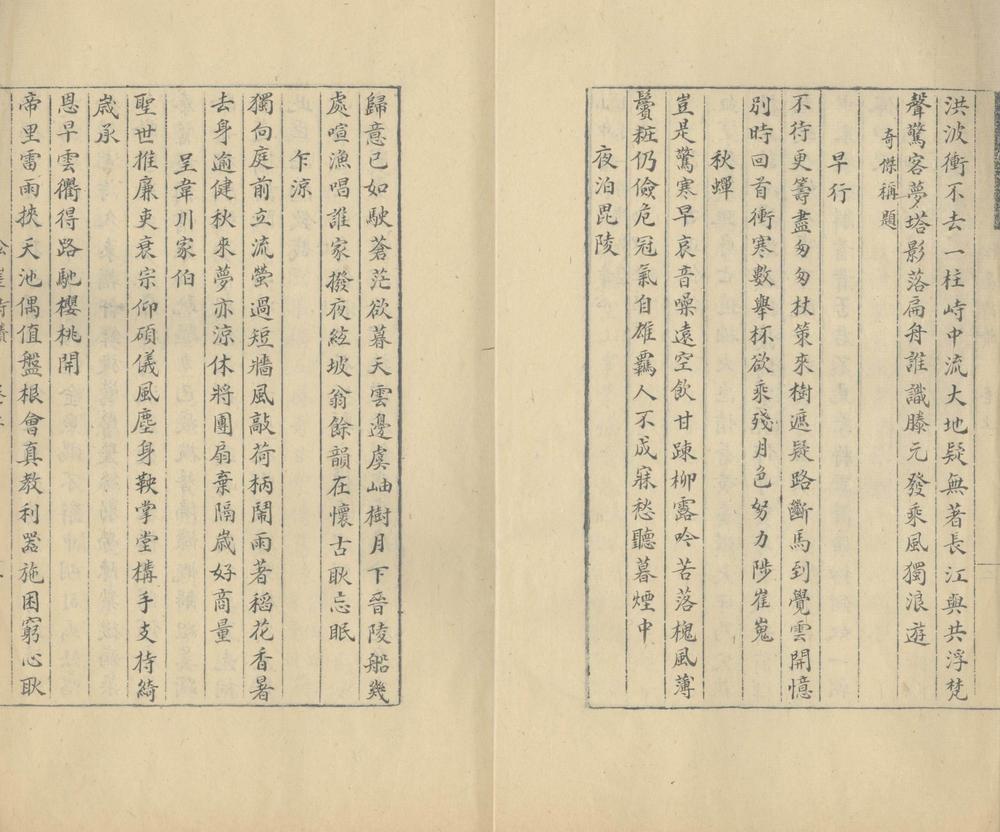 洪波衝不去一柱峙中流大地疑無著長江與共浮梵
聲驚客夢塔影落扁舟誰識滕元發乘風獨浪遊
奇傑稱題
早行
不待更籌盡匆匆杖策來樹遮疑路斷馬到覺雲開憶
別時回首衝寒數舉杯欲乘殘月色努力陟崔嵬
秋蟬
豈是驚寒早哀音噪遠空飲甘踈柳露吟苦落槐風薄
鬢粧仍儉危冠氣自雄羈人不成寐愁聽暮煙中
夜泊毘陵
歸意已如駛蒼茫欲暮天雲邊虞岫樹月下晉陵船幾
處喧漁唱誰家撥夜絃坡翁餘韻在懷古耿忘眠
乍涼
獨向庭前立流螢過短牆風敲荷柄鬧雨著稻花香暑
去身逾健秋來夢亦涼休將團扇棄隔歲好商量
呈韋川家伯
聖世推廉吏衰宗仰碩儀風塵身鞅掌堂構手支持綺
歲承
恩早雲衢得路馳櫻桃開
帝里雷雨挾天池偶值盤根會真教利器施困窮心耿